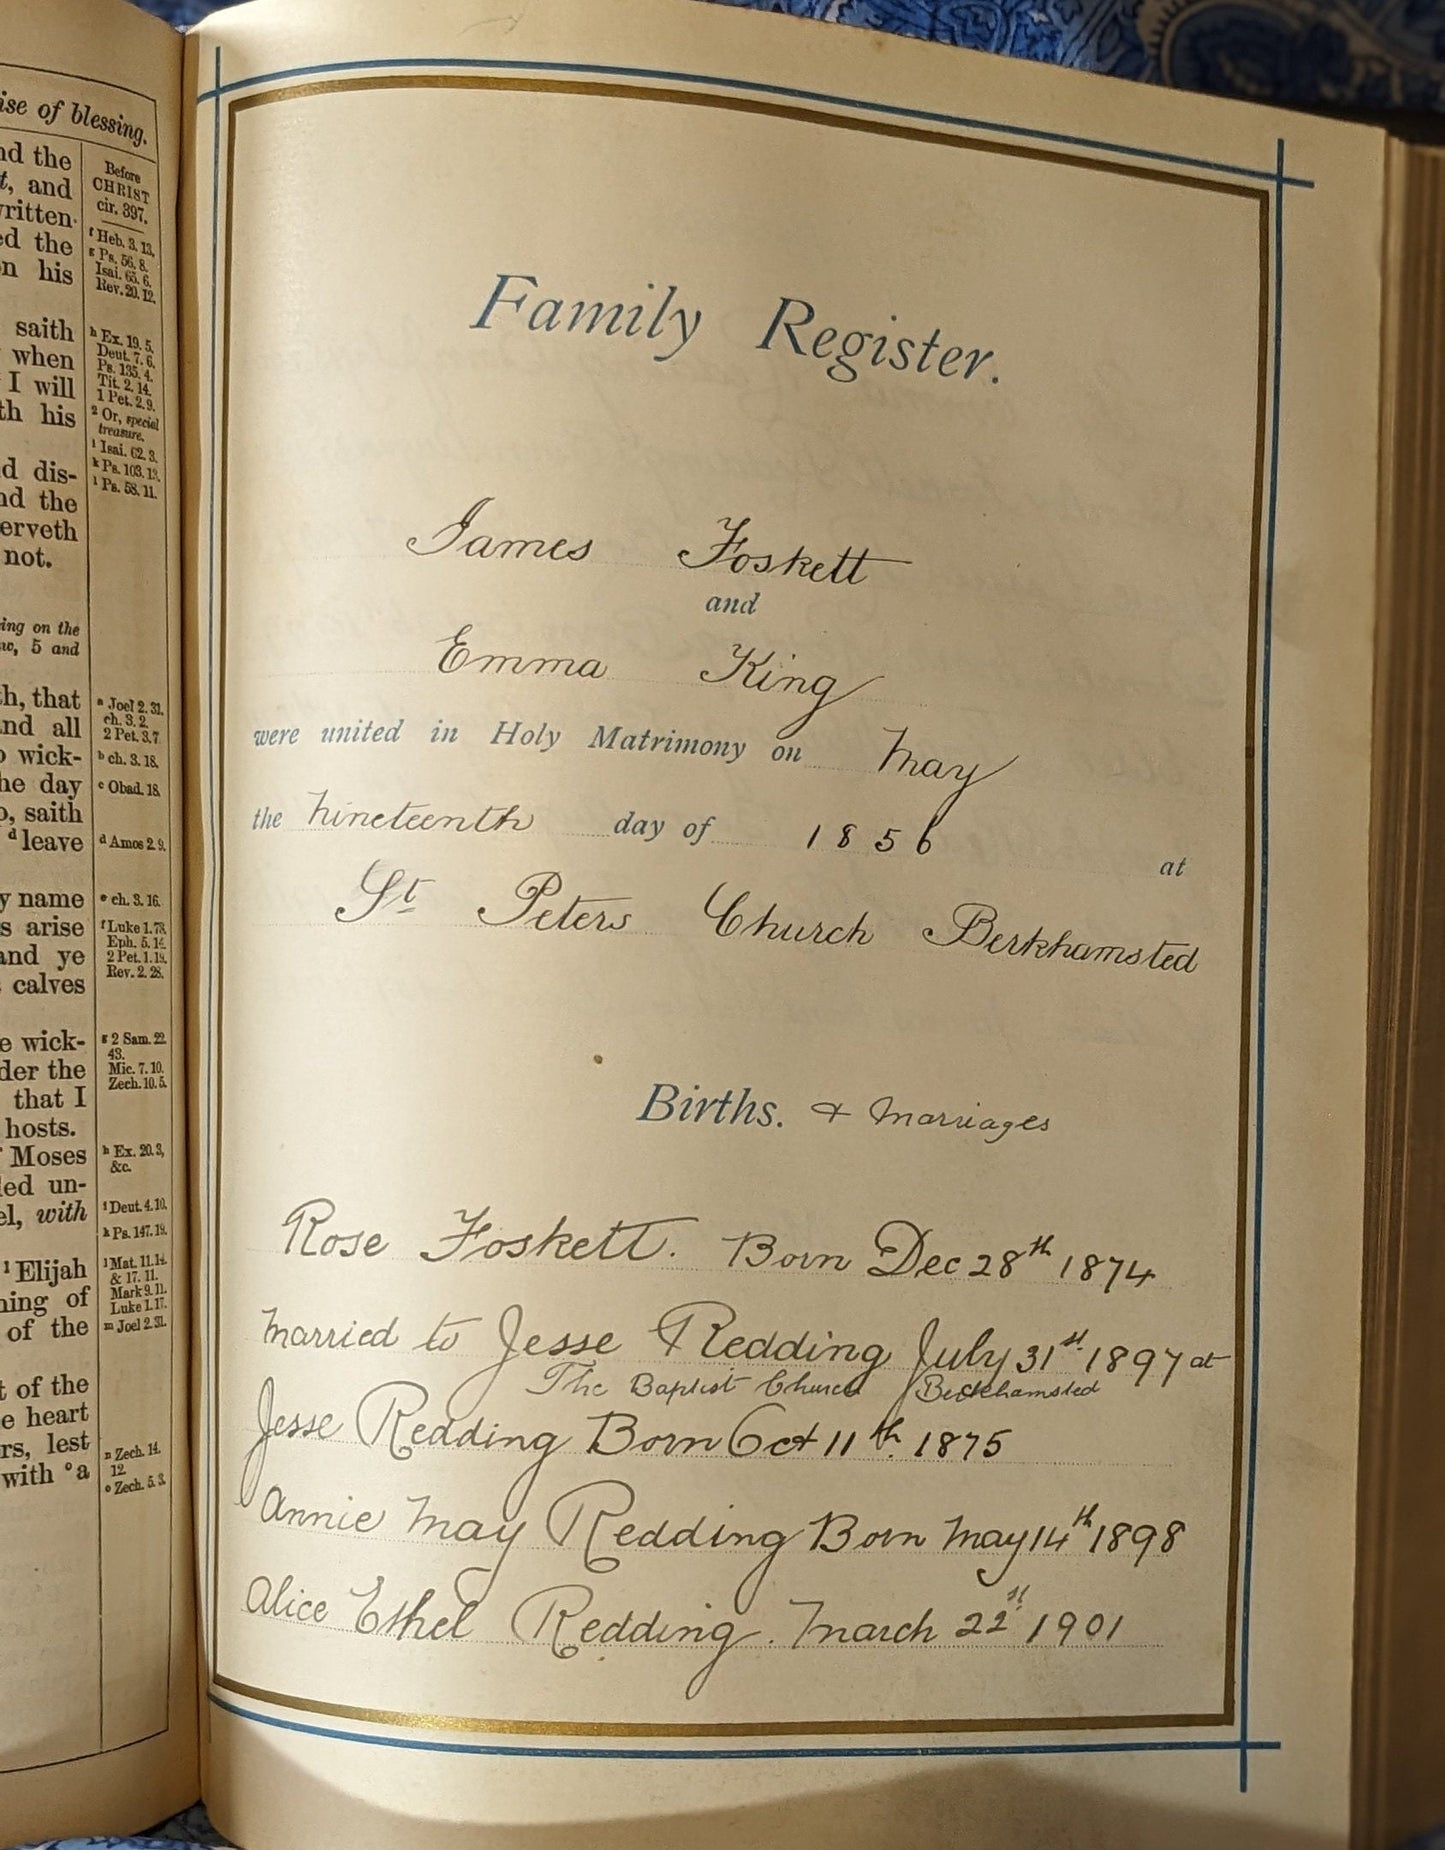 ise of blessing.
nd the
t, and
written
ed the
on his
saith
when
I will
th his
d dis-
nd the
erveth
not.
ing on the
5 and
th, that
and all
wick-
he day
saith
ᵈ leave
y name
s arise
and ye
calves
e wick-
der the
that I
hosts.
Moses
led un-
el, with
¹ Elijah
ning of
of the
t of the
e heart
rs, lest
with ° a
Before
CHRIST
cir. 397.
f Heb. 3. 13.
g Ps. 56. 8.
Isai. 65. 6.
Rev. 20. 12.
h Ex. 19. 5.
Deut. 7. 6.
Ps. 135. 4.
Tit. 2. 14.
1 Pet. 2. 9.
2 Or, special
treasure.
i Isai. 62. 3.
k Ps. 103. 13.
l Ps. 58. 11.
a Joel 2. 31.
ch. 3. 2.
2 Pet. 3. 7.
b ch. 3. 18.
c Obad. 18.
d Amos 2. 9.
e ch. 3. 16.
f Luke 1. 78.
Eph. 5. 14.
2 Pet. 1. 19.
Rev. 2. 28.
g 2 Sam. 22.
43.
Mic. 7. 10.
Zech. 10. 5.
h Ex. 20. 3,
&c.
i Deut. 4. 10.
k Ps. 147. 19.
l Mat. 11. 14.
& 17. 11.
Mark 9. 11.
Luke 1. 17.
m Joel 2. 31.
n Zech. 14.
12.
o Zech. 5. 3.
Family Register.
James Foskett
and
Emma King
were united in Holy Matrimony on May
the nineteenth day of 1856 at
St Peters Church Berkhamsted
Births. & Marriages
Rose Foskett. Born Dec 28th 1874
Married to Jesse Redding July 31st 1897 at
The Baptist Church Berkhamsted
Jesse Redding Born Oct 11th 1875
Annie May Redding Born May 14th 1898
Alice Ethel Redding. March 22st 1901